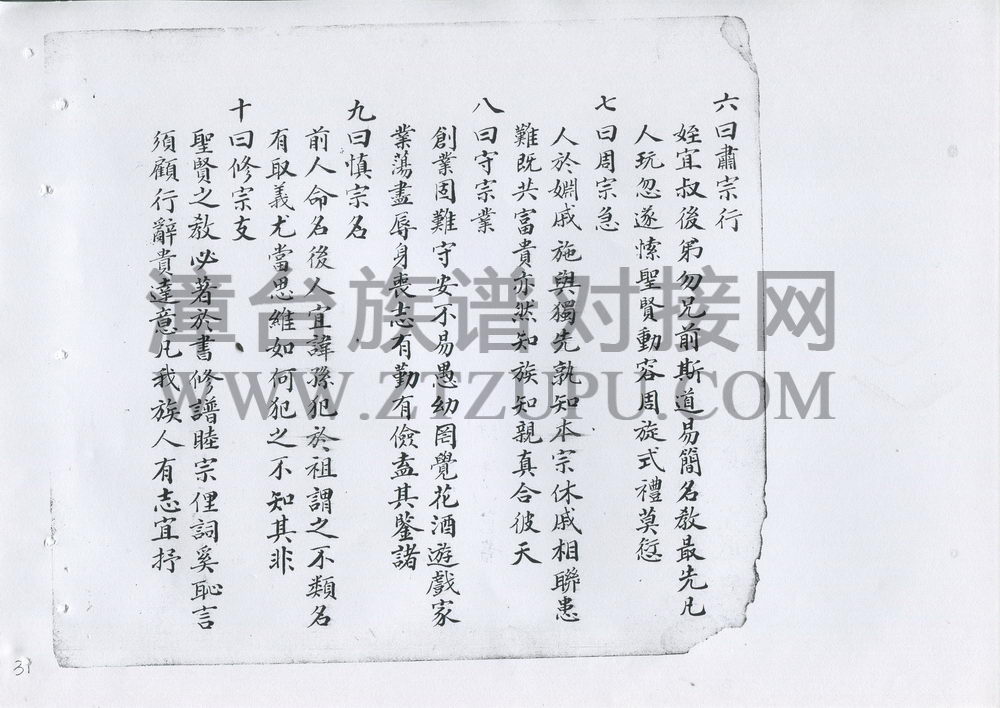 六曰肅宗行
姪宜叔後弟勿兄前斯道易簡名教最先凡
人玩忽遂愫聖賢動容周旋式禮莫愆
七曰周宗急
人於婣戚施與獨先孰知本宗休戚相聯患
難既共富貴亦然知族知親真合彼天
八曰守宗業
創業固難守安不易愚幼罔覺花酒遊戲家
業蕩盡辱身喪志有勤有儉盍其鑒諸
九曰慎宗名
前人命名後人宜諱孫犯於祖謂之不類名
有取義尤當思維如何犯之不知其非
十曰修宗支
聖賢之教必著於書修譜睦宗俚詞奚恥言
須顧行辭貴達意凡我族人有志宜抒
漳台族谱对接网
WWW.ZTZUPU.COM